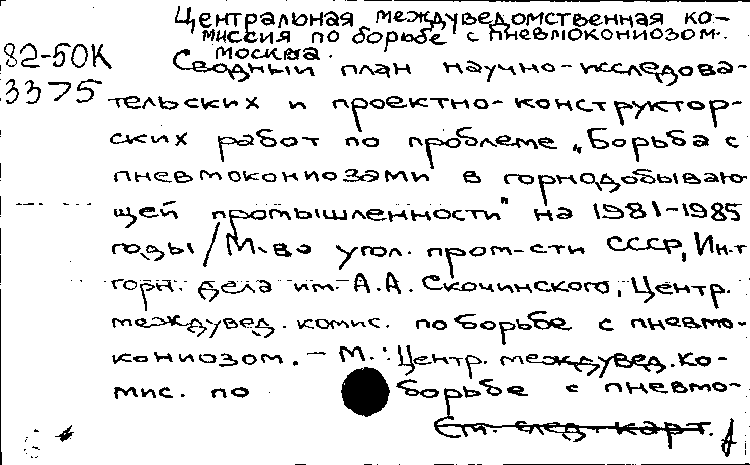 Центральная междуведомственная ко-
миссия по борьбе с пневмокониозом.
Москва.
82-50К Сводный план научно-исследова-
3375 тельских и проектно-конструктор-
ских работ по проблеме „Борьба с
пневмокониозами в горнодобываю-
щей промышленности" на 1981-1985
годы / М-во угол. пром-сти СССР, Ин-т
горн. дела им. А.А. Скочинского, Центр.
междувед. комис. по борьбе с пневмо-
кониозом. - М.: Центр. междувед. ко-
мис. по борьбе с пневмо-
См. след. карт.